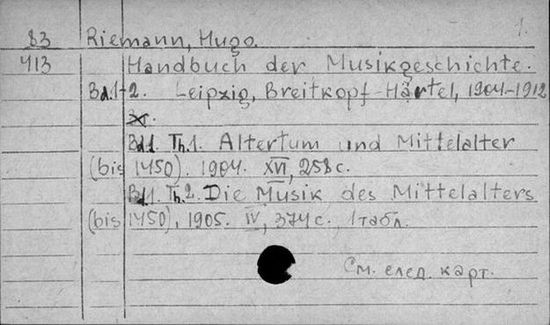 1.
83 Riemann, Hugo.
413 Handbuch der Musikgeschichte.
Bd.1-2. Leipzig, Breitkopf-Härtel, 1904-1912
Bd1. Th.1. Altertum und Mittelalter
(bis 1450). 1904. XVI, 258 с.
Bd1. Th.2. Die Musik des Mittelalters
(bis 1450), 1905. IV, 374 с., 1 табл.
См. след. карт.